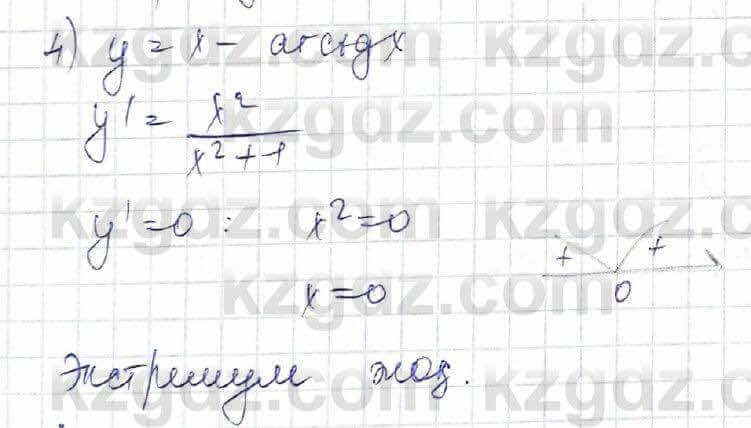 4) y = x - arctg x
y' = x²/(x²+1)
y'=0 : x²=0
x=0
+ + 0
Экстремум жоқ.
kzgdz.com
kzgdz.com
kzgdz.com
kzgdz.com
kzgdz.com
kzgdz.com